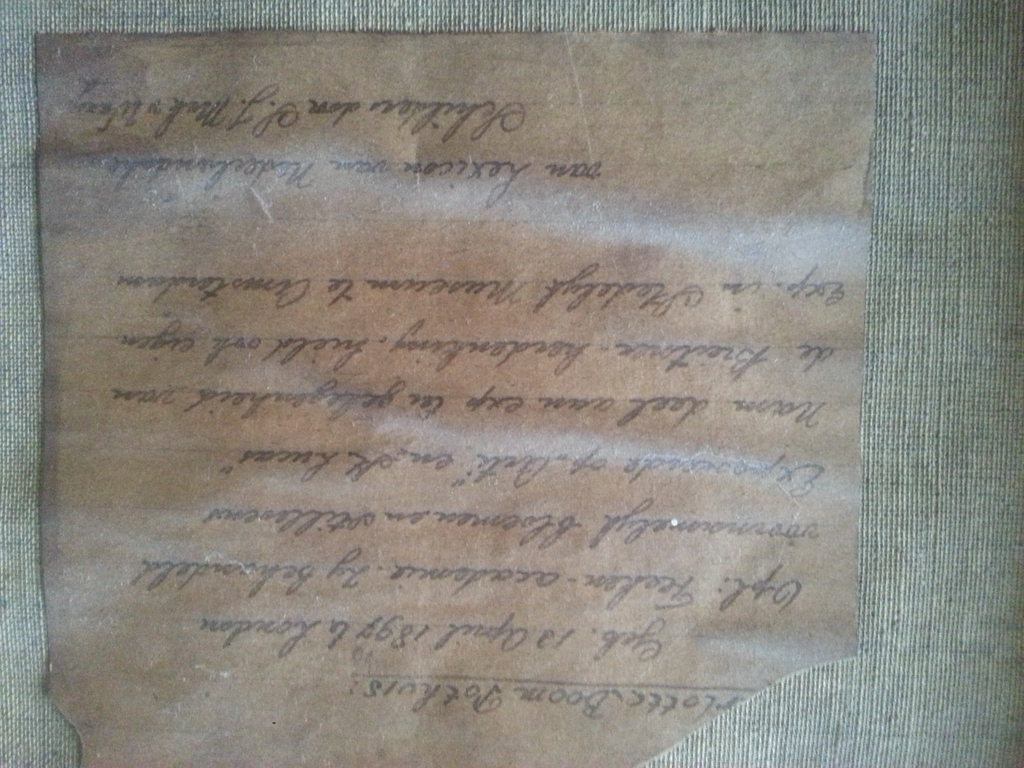 rlotte Boom Pothuis:
Geb. 13 April 1897 te London
Opl. Teeken-academie. Zy behandeld
voornamelyk bloemen en stillevens
Exposeerde op "Arti" en "St Lucas"
Nam deel aan exp ter gelegenheid van
de Breitner-herdenking. hield ook eigen
Exp. in Stedelyk Museum te Amsterdam
van Lexicon van Nederlandsche
Schilders door S. J. Mak v Waay